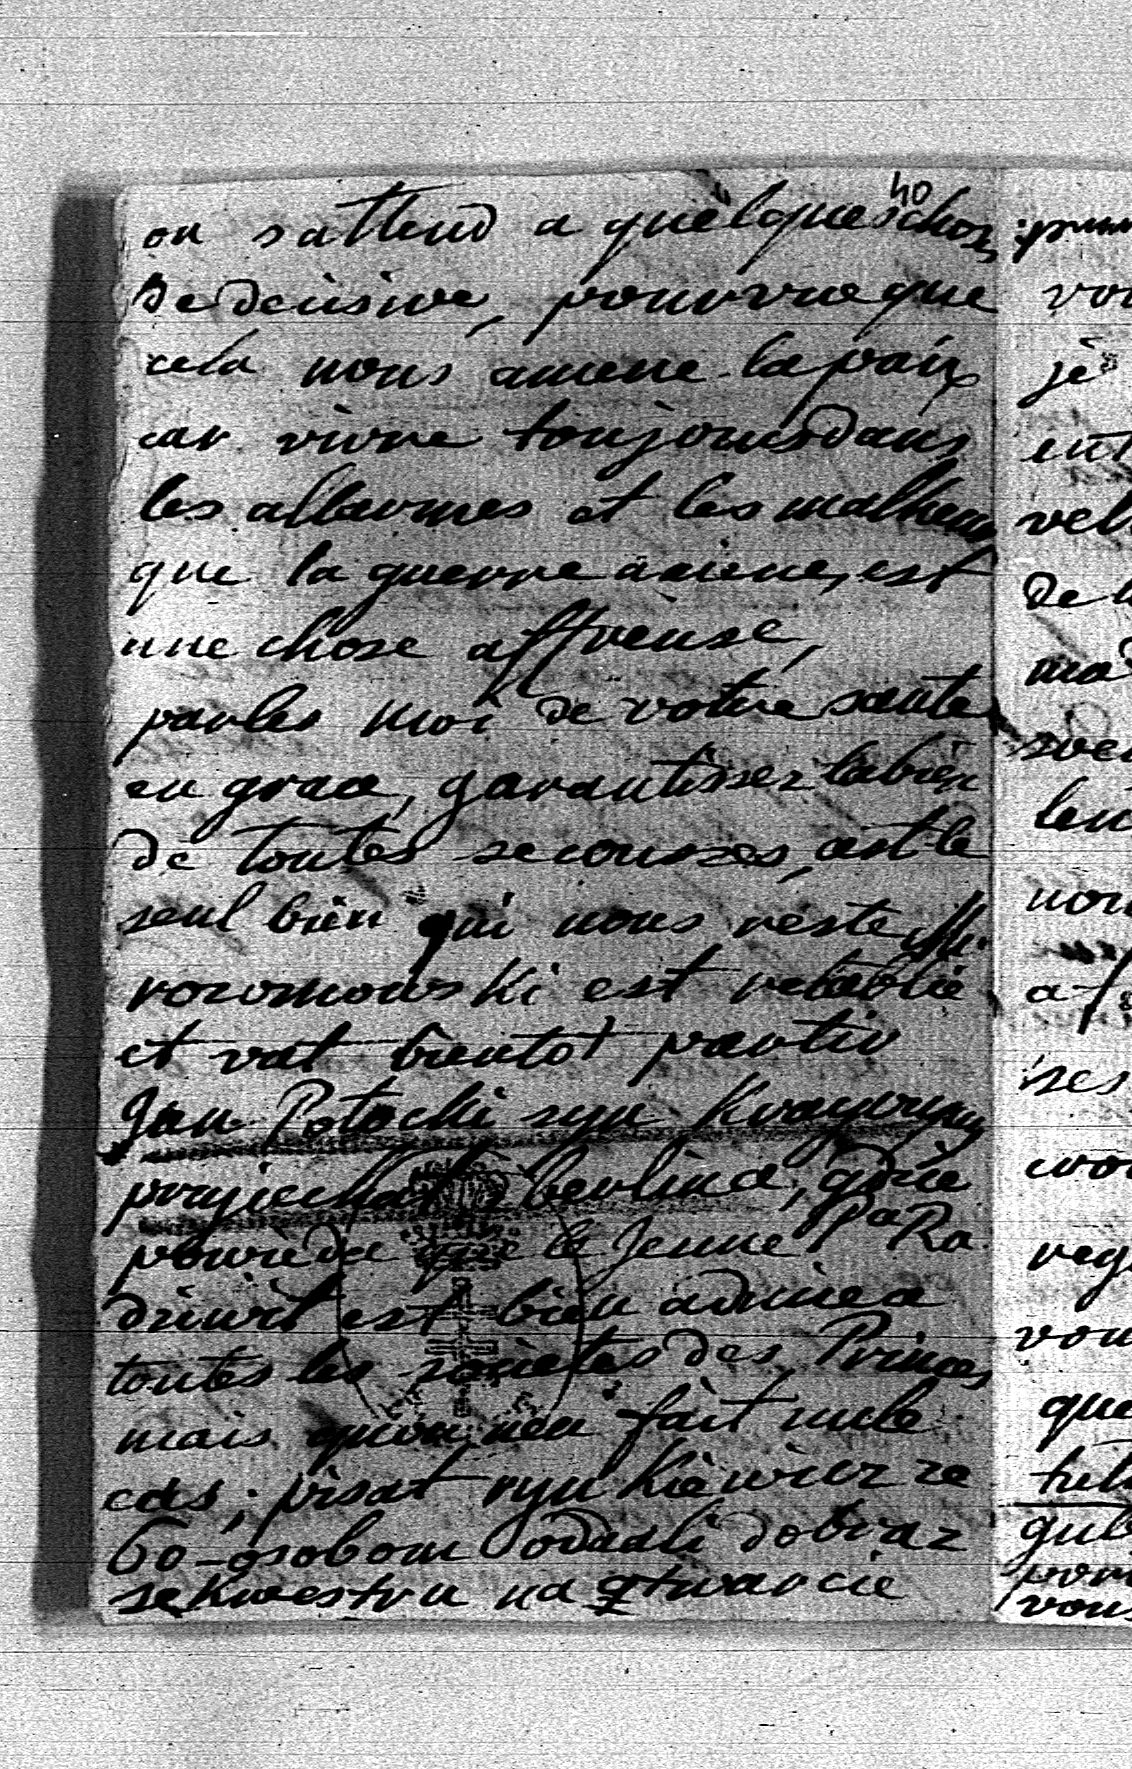 40
on sattend a quelque chose
de decisive, pourvue que
cela nous amene la paix
car vivre toujours dans
les allarmes et les malheurs
que la guerre amene, est
une chose affreuse,
parles moi de votre sante
en grace, garantissez la bien
de toutes secousses, cest le
seul bien qui nous reste
rozomowski est retablie
et vat bientot partir
Jan Potocki syn Krayczyny
przyjechał z berlina, gdzie
powieda que le Jeune P Ra
dziwił est bien admie a
toutes les societes des Princes
mais quon nen fait nule
cas; pisał rynkiewicz ze
60 osobom oddali dobra z
sekwestru na otwarcie